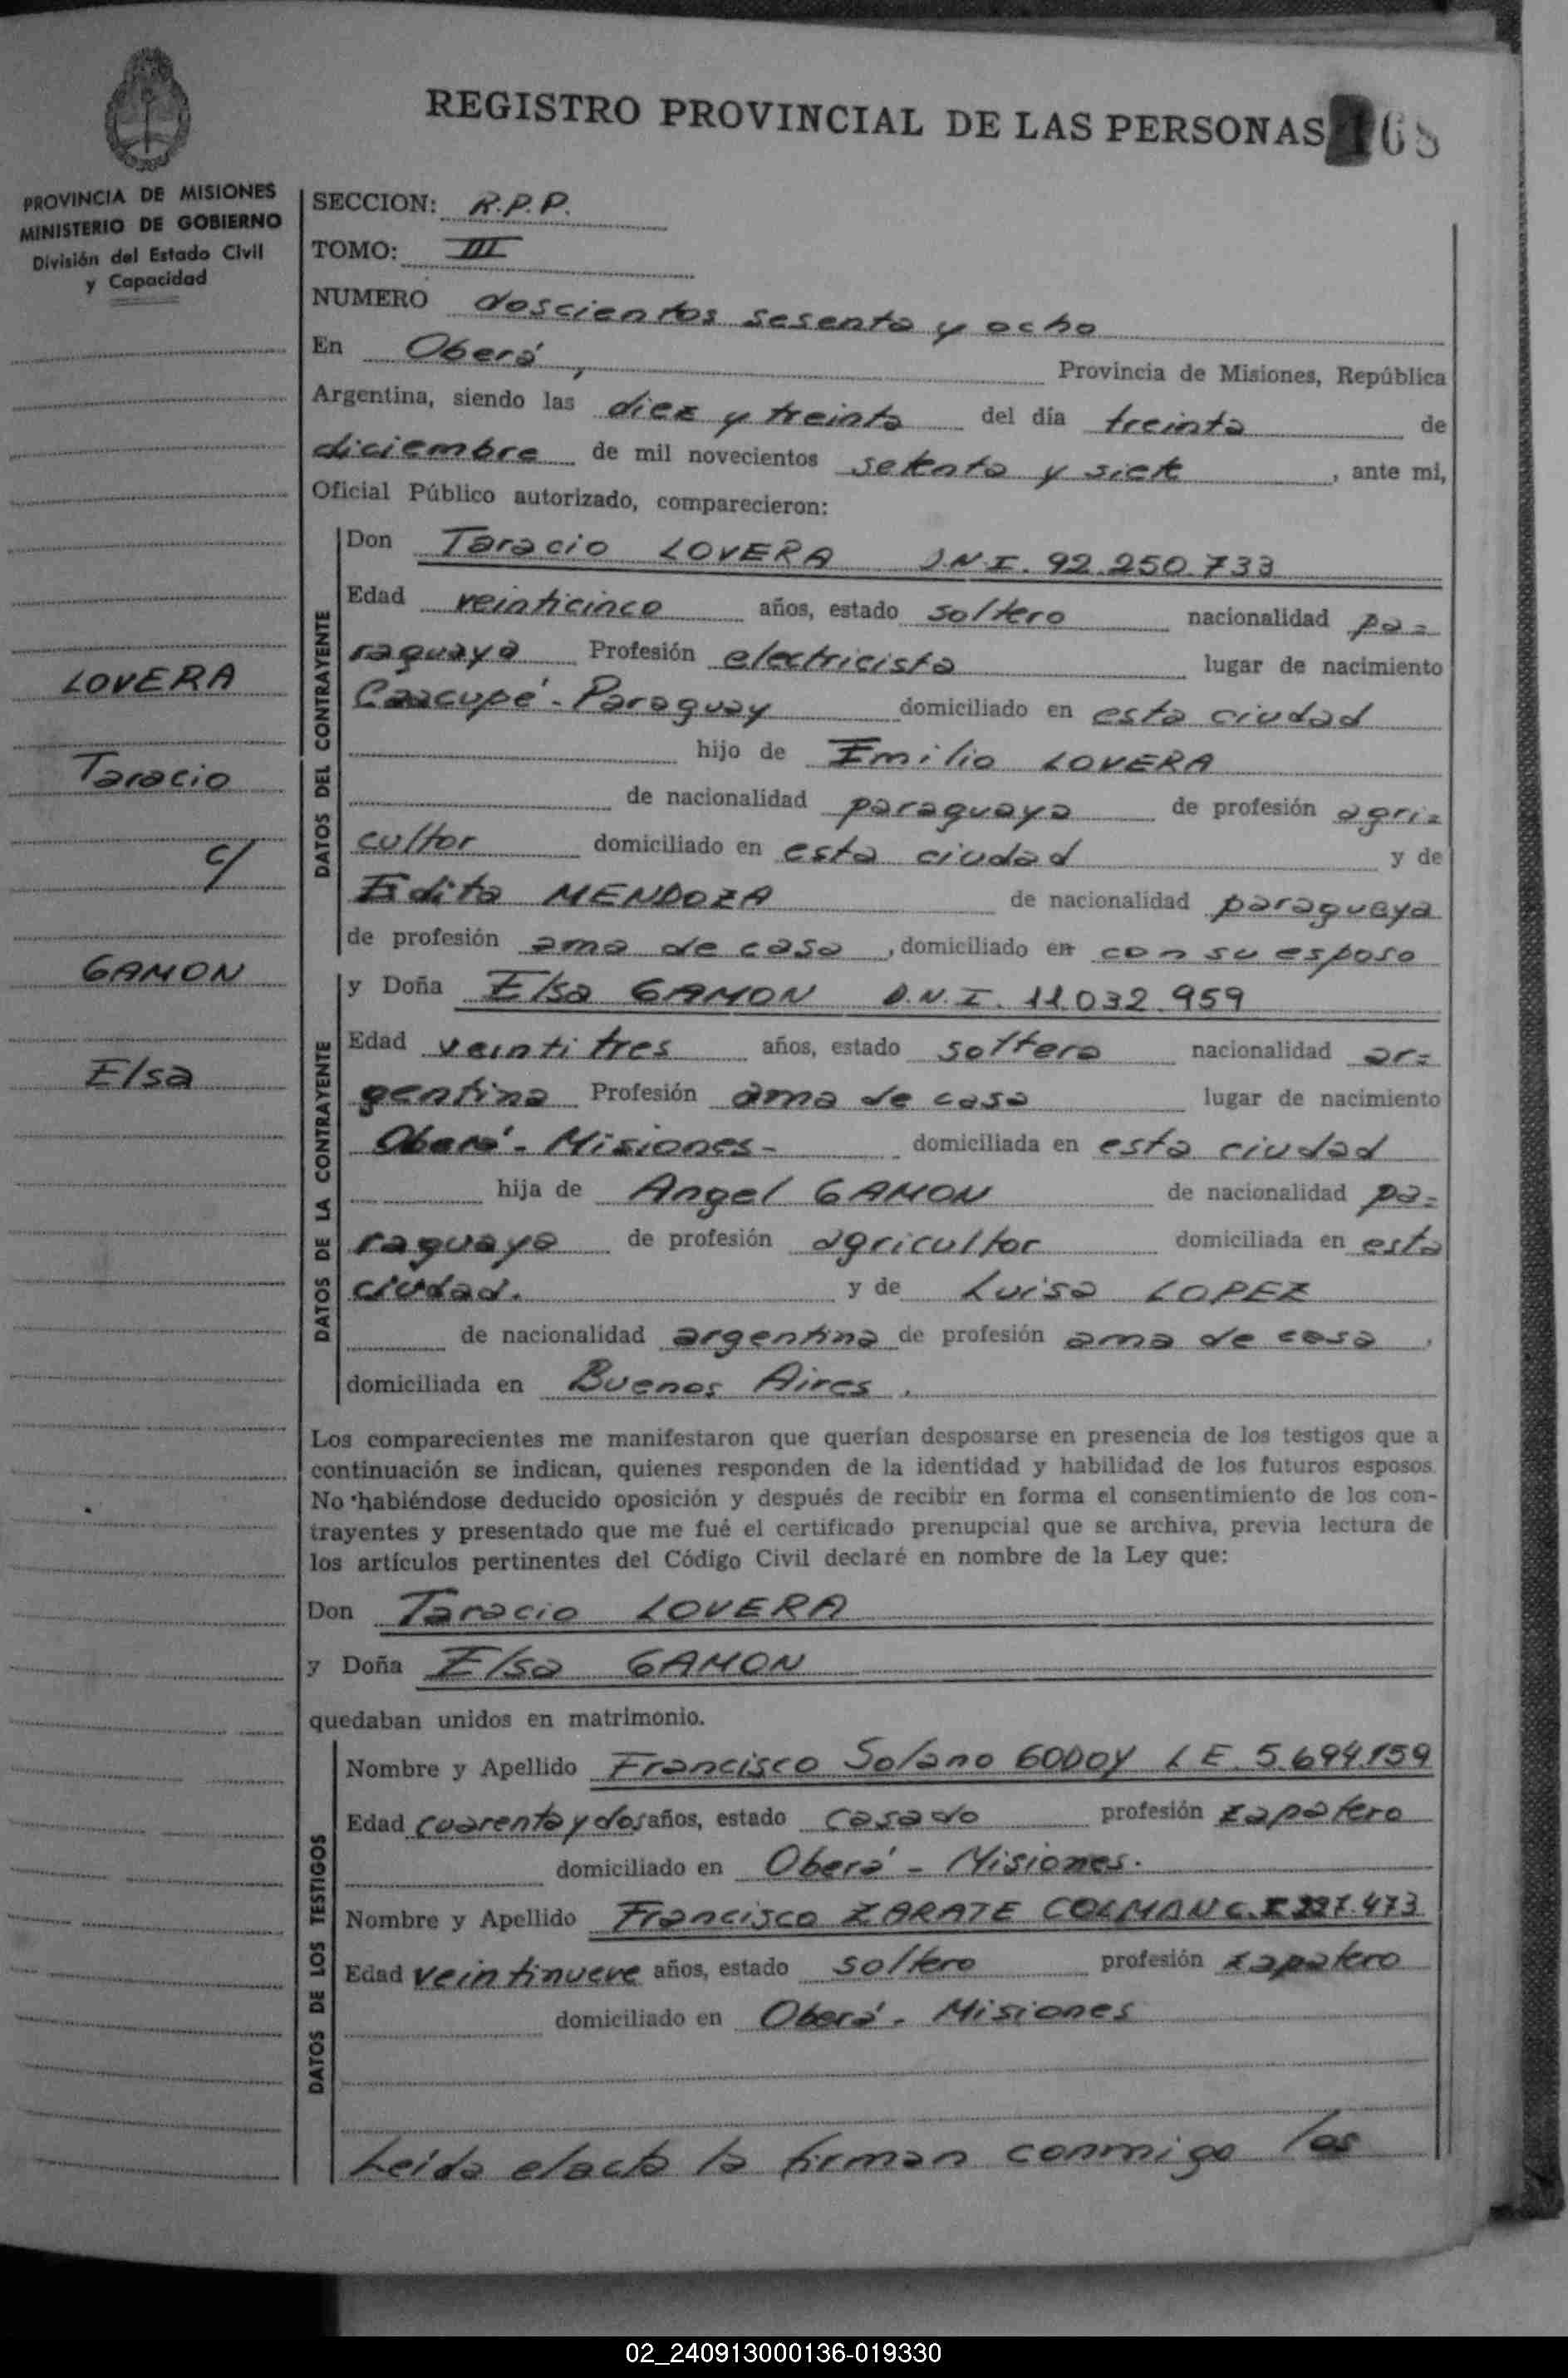 REGISTRO PROVINCIAL DE LAS PERSONAS 168
PROVINCIA DE MISIONES
MINISTERIO DE GOBIERNO
División del Estado Civil
y Capacidad
LOVERA
Taracio
c/
GAMON
Elsa
SECCION: R.P.P.
TOMO: III
NUMERO doscientos sesenta y ocho
En Oberá, Provincia de Misiones, República
Argentina, siendo las diez y treinta del día treinta de
diciembre de mil novecientos setenta y siete, ante mi,
Oficial Público autorizado, comparecieron:
DATOS DEL CONTRAYENTE
Don Taracio LOVERA D.N.I. 92.250.733
Edad veinticinco años, estado soltero nacionalidad pa=
raguaya Profesión electricista lugar de nacimiento
Caacupé - Paraguay domiciliado en esta ciudad
hijo de Emilio LOVERA
de nacionalidad paraguaya de profesión agri=
cultor domiciliado en esta ciudad y de
Edita MENDOZA de nacionalidad paraguaya
de profesión ama de casa, domiciliado en con su esposo
DATOS DE LA CONTRAYENTE
y Doña Elsa GAMON D.N.I. 11.032.959
Edad veintitres años, estado soltera nacionalidad ar=
gentina Profesión ama de casa lugar de nacimiento
Oberá - Misiones - domiciliada en esta ciudad
hija de Angel GAMON de nacionalidad pa=
raguaya de profesión agricultor domiciliada en esta
ciudad. y de Luisa LOPEZ
de nacionalidad argentina de profesión ama de casa,
domiciliada en Buenos Aires.
Los comparecientes me manifestaron que querían desposarse en presencia de los testigos que a
continuación se indican, quienes responden de la identidad y habilidad de los futuros esposos.
No habiéndose deducido oposición y después de recibir en forma el consentimiento de los con-
trayentes y presentado que me fué el certificado prenupcial que se archiva, previa lectura de
los artículos pertinentes del Código Civil declaré en nombre de la Ley que:
Don Taracio LOVERA
y Doña Elsa GAMON
quedaban unidos en matrimonio.
DATOS DE LOS TESTIGOS
Nombre y Apellido Francisco Solano GODOY L E. 5.694.159
Edad cuarenta y dos años, estado casado profesión zapatero
domiciliado en Oberá - Misiones.
Nombre y Apellido Francisco ZARATE COLMAN C.I
Edad veintinueve años, estado soltero profesión zapatero
domiciliado en Oberá - Misiones
Leída el acta la firman conmigo los
02_240913000136-019330